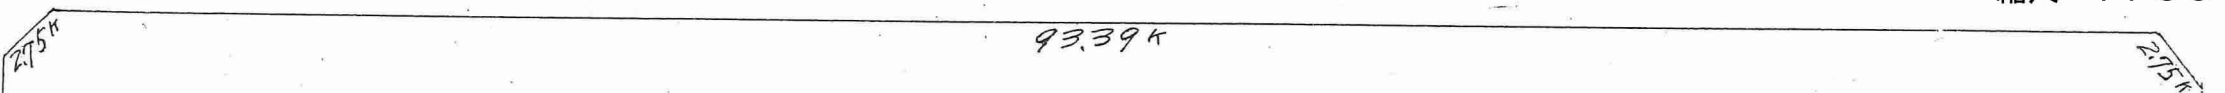 2.75K
93.39K
2.75K